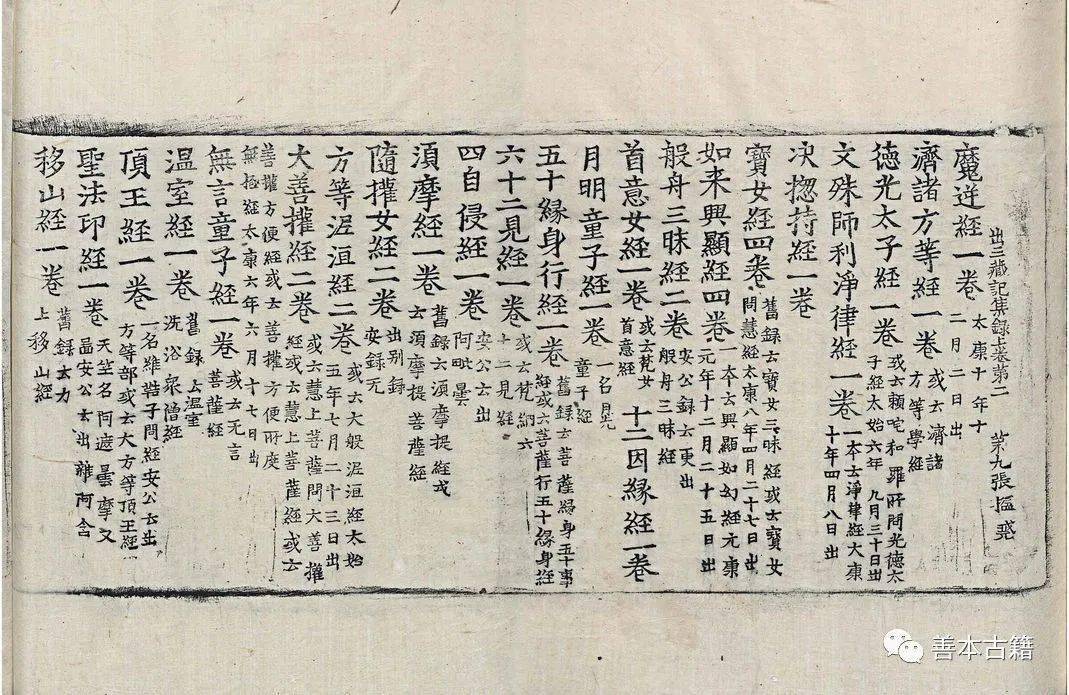 出三藏記集録上卷第二　第九張　𣜩
魔逆經一卷　太康十年十二月二日出
濟諸方等經一卷　或云濟諸方等學經
德光太子經一卷　或云賴吒和羅所問光德太子經太始六年九月三十日出
文殊師利淨律經一卷　一本云淨律經太康十年四月八日出
决揔持經一卷
寶女經四卷　舊録云寶女三昧經或云寶女問慧經太康八年四月二十七日出
如来興顯經四卷　一本云興顯如幻經元康元年十二月二十五日出
般舟三昧經二卷　安公録云更出般舟三昧經
首意女經一卷　或云梵女首意經　十二因緣經一卷
月明童子經一卷　一名月光童子經
五十緣身行經一卷　舊録云菩薩緣身五十事經或云菩薩行五十緣身經
六十二見經一卷　或云梵網六十二見經
四自侵經一卷　安公云出阿毗曇
須摩經一卷　舊録云須摩提經或云須摩提菩薩經
隨權女經二卷　出别録安録无
方等泥洹經二卷　或云大般泥洹經太始五年七月二十三日出
大善權經二卷　或云慧上菩薩問大善權經或云慧上菩薩經或云
善權方便經或云善權方便所度無極經太康六年六月十七日出
無言童子經一卷　或云无言菩薩經
温室經一卷　舊録云温室洗浴衆僧經
頂王經一卷　一名維摩子問經安公云出方等部或云大方等頂王經
聖法印經一卷　天竺名阿遮曇摩又啚安公云出雜阿含
移山經一卷　舊録云力士移山經
善本古籍